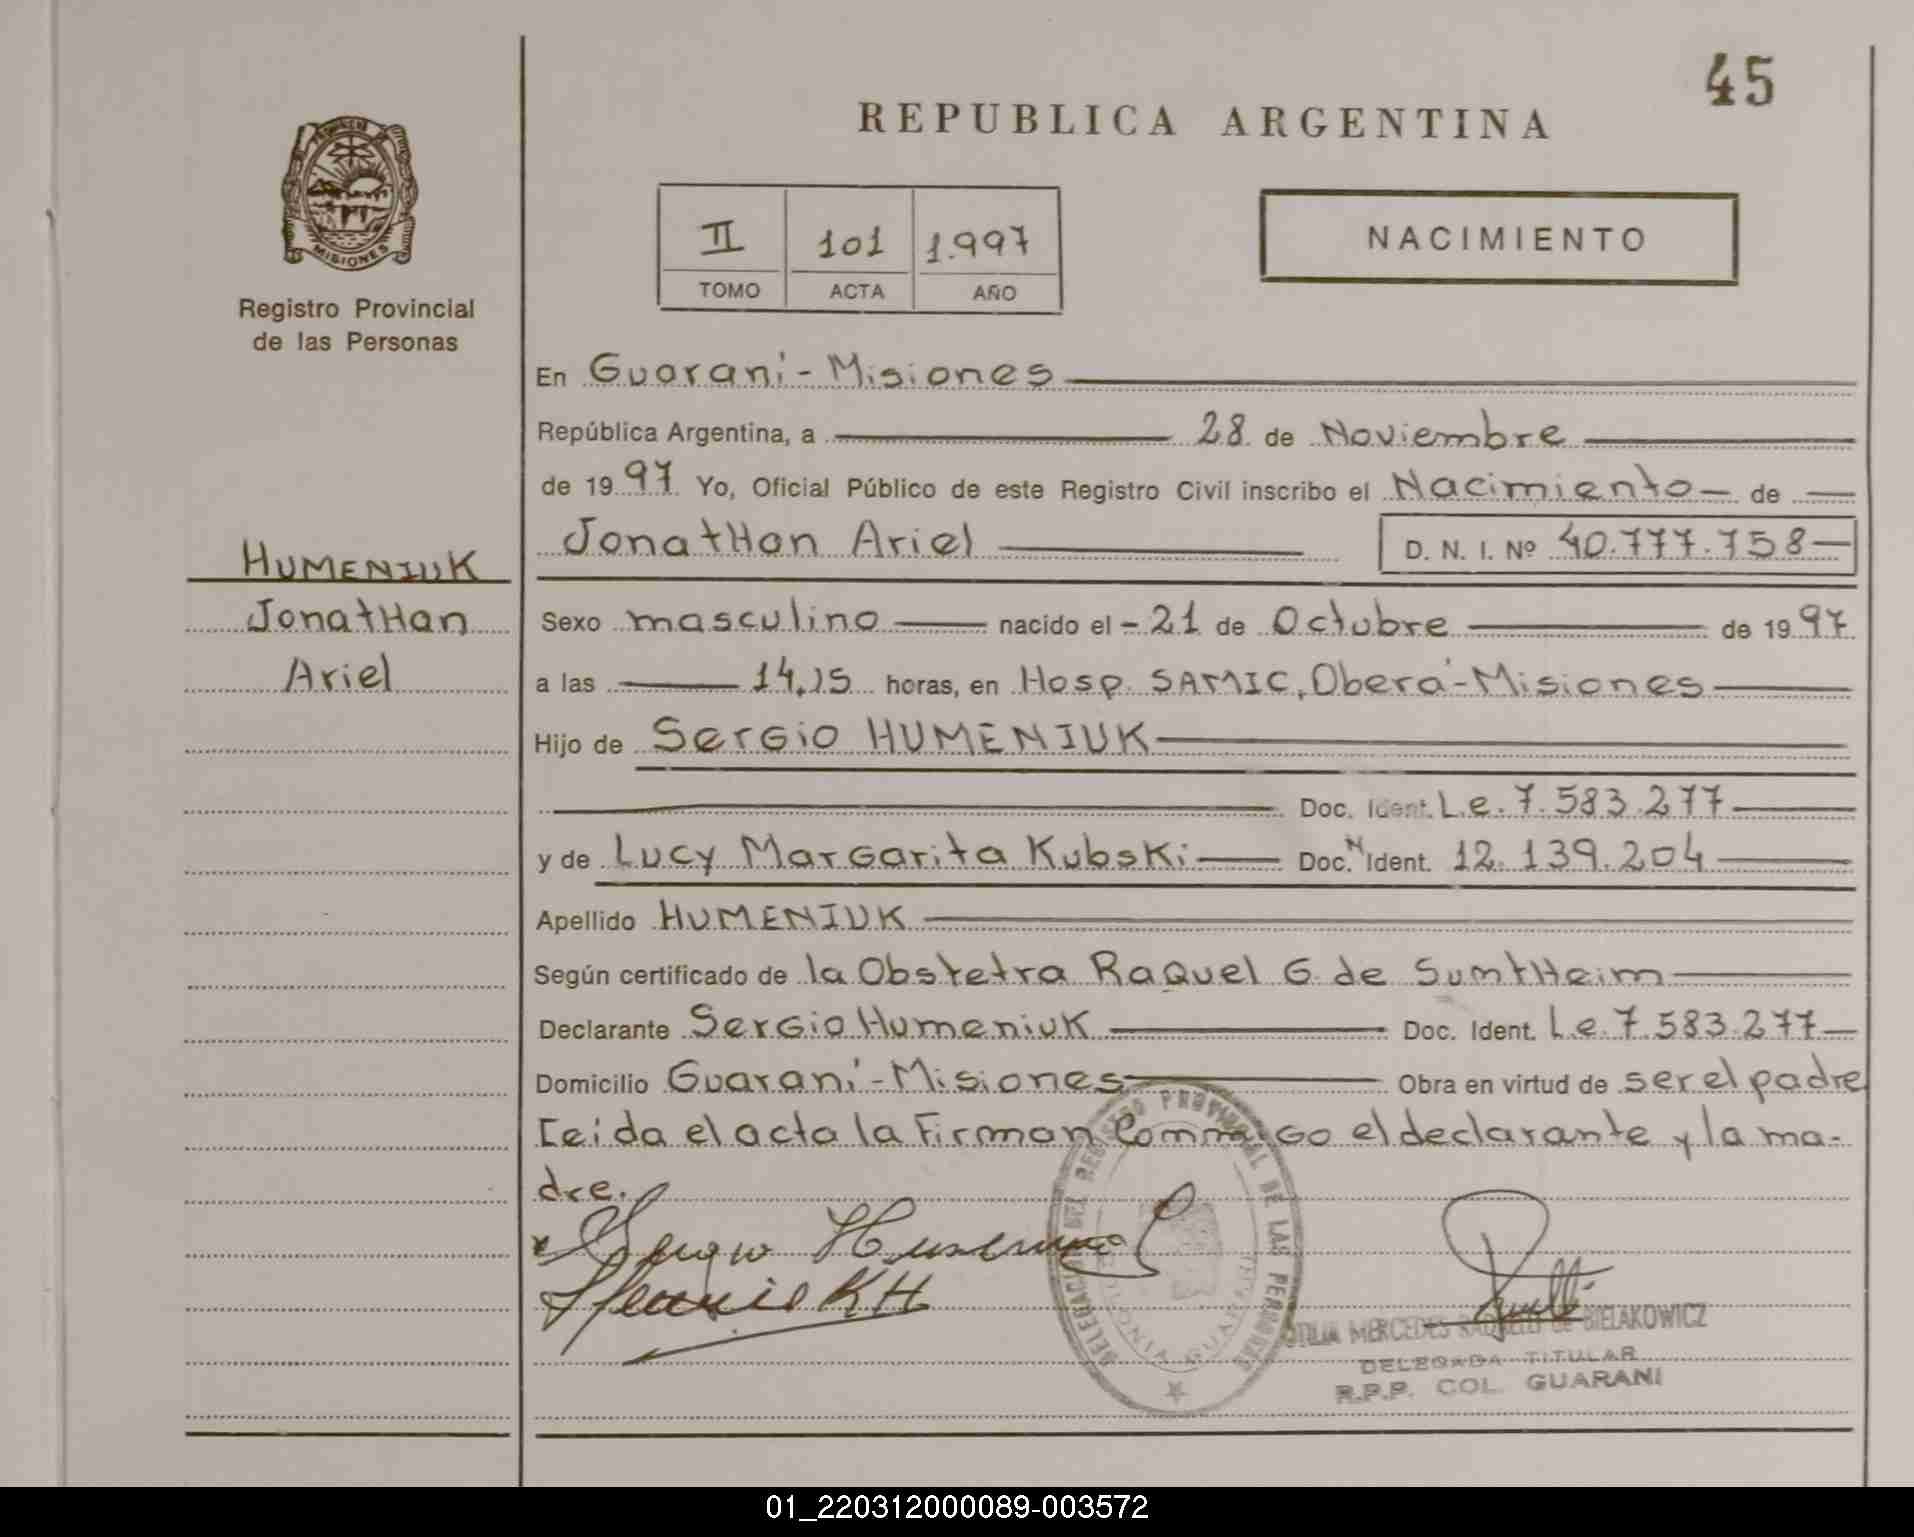 45
REPUBLICA ARGENTINA
PROVINCIA
MISIONES
Registro Provincial
de las Personas
II 101 1.997
TOMO ACTA AÑO
NACIMIENTO
En Guaraní - Misiones
República Argentina, a 28 de Noviembre
de 1997 Yo, Oficial Público de este Registro Civil inscribo el Nacimiento de
JonatHan Ariel D. N. I. Nº 40.777.758
HUMENIUK
JonatHan
Ariel
Sexo masculino nacido el - 21 de Octubre de 1997
a las 14,15 horas, en Hosp. SAMIC, Oberá - Misiones
Hijo de Sergio HUMENIUK
Doc. Ident. L.e. 7.583.277
y de Lucy Margarita Kubski Doc. N Ident. 12.139.204
Apellido HUMENIUK
Según certificado de la Obstetra Raquel G. de SumtHeim
Declarante Sergio Humeniuk Doc. Ident. L.e. 7.583.277
Domicilio Guaraní - Misiones Obra en virtud de ser el padre
Leida el acta la Firman Conmigo el declarante y la ma-
dre.
DELEGACION DEL REGISTRO PROVINCIAL DE LAS PERSONAS
COLONIA GUARANI
MERCEDES de BIELAKOWICZ
DELEGADA TITULAR
R.P.P. COL. GUARANI
01_220312000089-003572